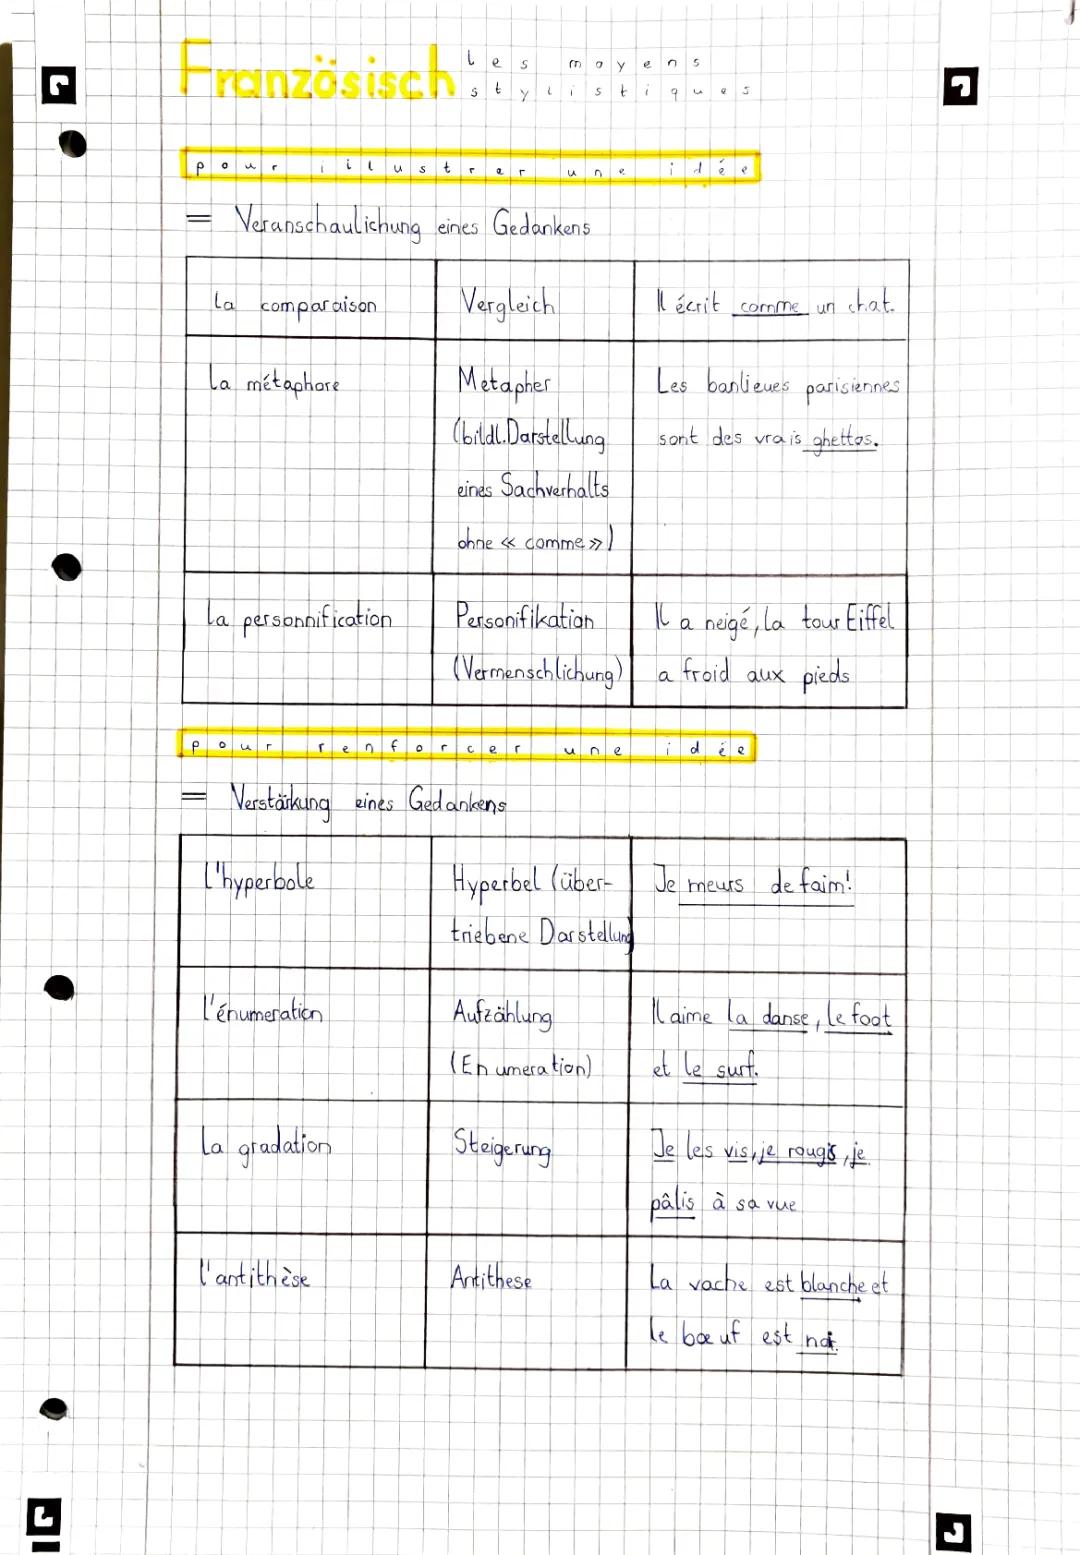 Französisch les moyens
stylistiques
pour illustrer une idée
= Veranschaulichung eines Gedankens
la comparaison Vergleich Il écrit comme un chat.
la métaphore Metapher Les banlieues parisiennes
(bildl. Darstellung sont des vrais ghettos.
eines Sachverhalts
ohne « comme »)
la personnification Personifikation Il a neigé, la tour Eiffel
(Vermenschlichung) a froid aux pieds
pour renforcer une idée
= Verstärkung eines Gedankens
l'hyperbole Hyperbel (über- Je meurs de faim!
triebene Darstellung
l'énumeration Aufzählung Il aime la danse, le foot
(Enumeration) et le surf.
la gradation Steigerung Je les vis, je rougis, je
pâlis à sa vue
l'antithèse Antithese La vache est blanche et
le bœuf est